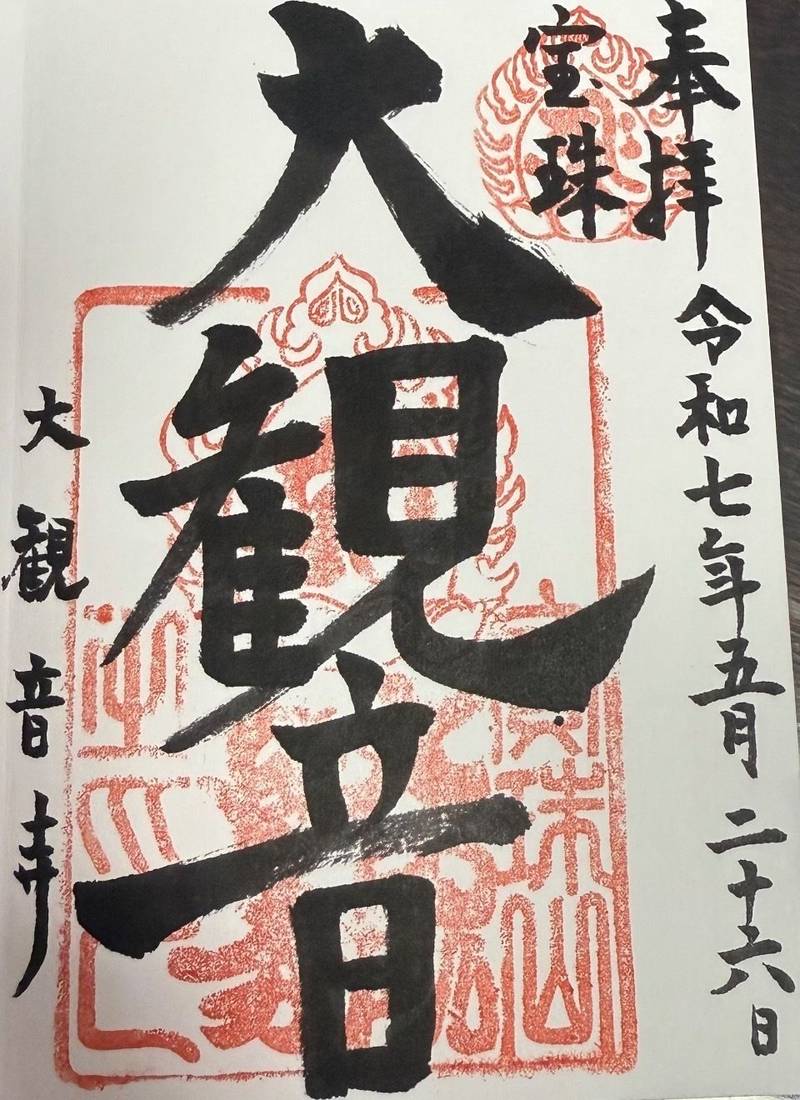 奉拝 令和七年五月二十六日
宝珠
大観音
大観音寺